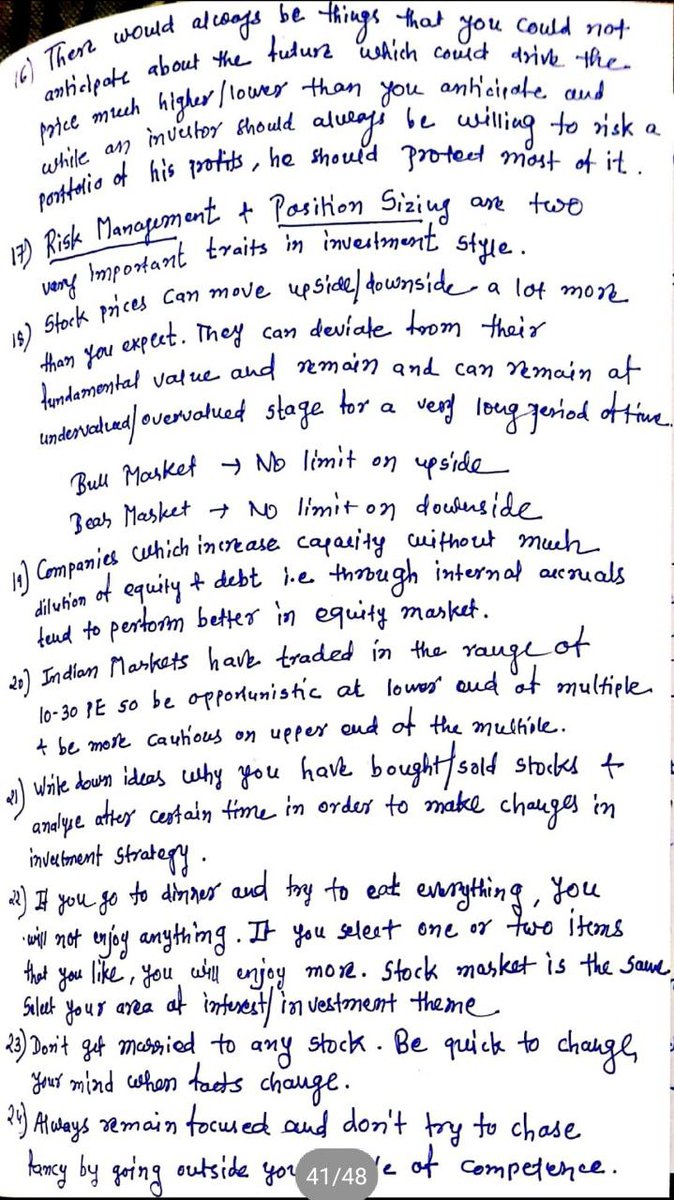 16) There would always be things that you could not
anticipate about the future which could drive the
price much higher/lower than you anticipate and
while an investor should always be willing to risk a
portfolio of his profits, he should protect most of it.
17) Risk Management + Position Sizing are two
very Important traits in investment style.
18) Stock prices can move upside/downside a lot more
than you expect. They can deviate from their
fundamental value and remain and can remain at
undervalued/overvalued stage for a very long period of time.
Bull Market → No limit on upside
Bear Market → No limit on downside
19) Companies which increase capacity without much
dilution of equity & debt i.e through internal accruals
tend to perform better in equity market.
20) Indian Markets have traded in the range of
10-30 PE so be opportunistic at lower end of multiple
+ be more cautious on upper end of the multiple.
21) Write down ideas why you have bought/sold stocks +
analyse after certain time in order to make changes in
investment strategy.
22) If you go to dinner and try to eat everything, you
will not enjoy anything. If you select one or two items
that you like, you will enjoy more. Stock market is the same
Select your area of interest/investment theme
23) Don't get married to any stock. Be quick to change
your mind when facts change.
24) Always remain focused and don't try to chase
fancy by going outside of competence.
41/48